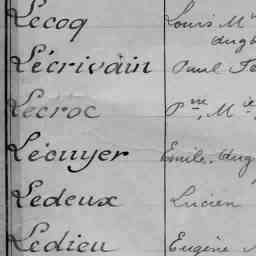 Lecoq Louis M
Aug
Lécrivain Paul
Lecroc Pre, Mie
Lécuyer Emile, Aug
Ledeux Lucien
Ledieu Eugène